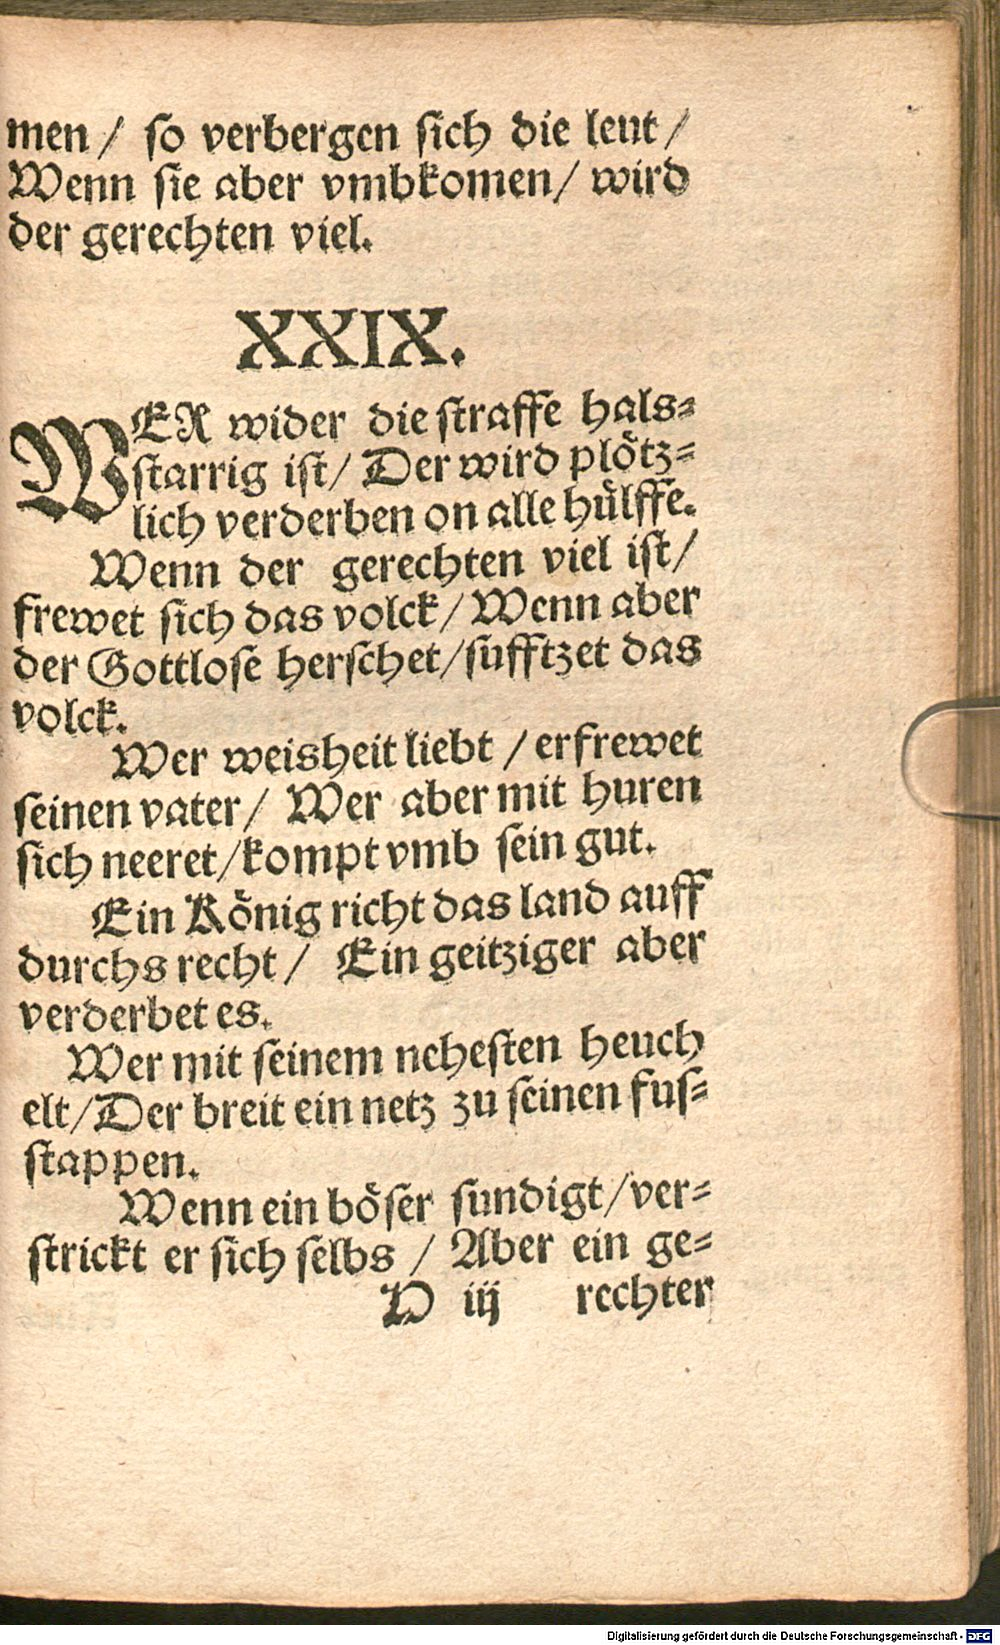 men / so verbergen sich die leut /
Wenn sie aber vmbkomen / wird
der gerechten viel.
XXIX.
WER wider die straffe hals⸗
starrig ist / Der wird plötz⸗
lich verderben on alle hülffe.
Wenn der gerechten viel ist /
frewet sich das volck / Wenn aber
der Gottlose herschet / sufftzet das
volck.
Wer weisheit liebt / erfrewet
seinen vater / Wer aber mit huren
sich neeret / kompt vmb sein gut.
Ein König richt das land auff
durchs recht / Ein geitziger aber
verderbet es.
Wer mit seinem nehesten heuch
elt / Der breit ein netz zu seinen fus⸗
stappen.
Wenn ein böser sundigt / ver⸗
strickt er sich selbs / Aber ein ge⸗
iij rechter
Digitalisierung gefördert durch die Deutsche Forschungsgemeinschaft - DFG